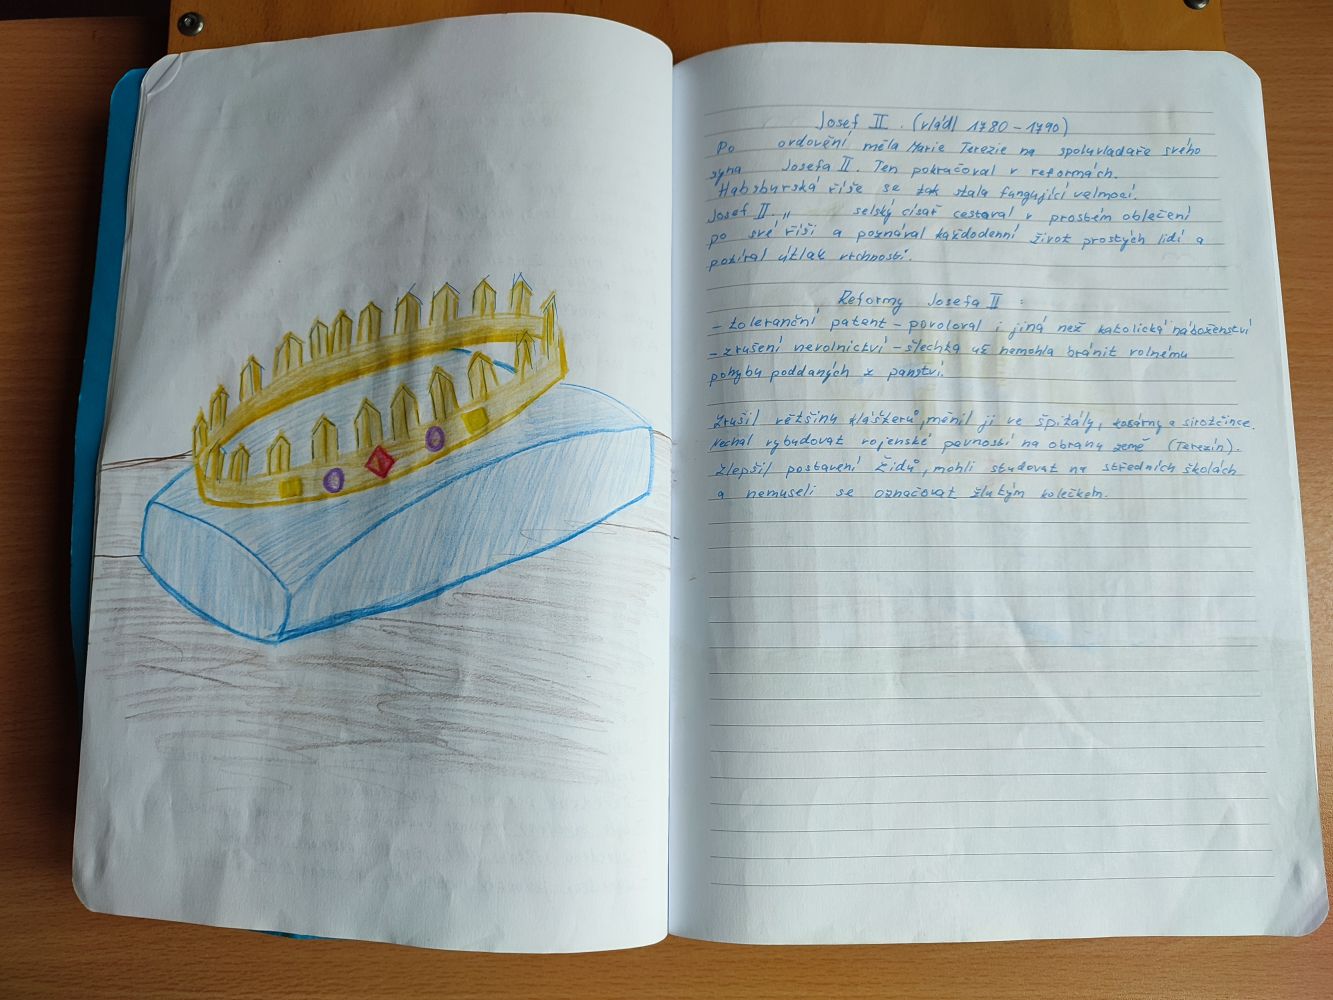 Josef II. (vládl 1780-1790)
Po ovdovění měla Marie Terezie na spoluvladaře svého
syna Josefa II. Ten pokračoval v reformách.
Habsburská říše se tak stala fungující velmocí.
Josef II. „ selský císař cestoval v prostém oblečení
po své říši a poznával každodenní život prostých lidí a
útlak vrchnosti.
Reformy Josefa II :
- toleranční patent - povoloval i jiná než katolická náboženství
- zrušení nevolnictví - šlechta už nemohla bránit volnému
pohybu poddaných z panství.
Zrušil většinu klášterů, měnil ji ve špitály, kasárny a sirotčince.
Nechal vybudovat vojenské pevnosti na obranu země (Terezín).
Zlepšil postavení Židů, mohli studovat na středních školách
a nemuseli se označovat žlutým kolečkem.